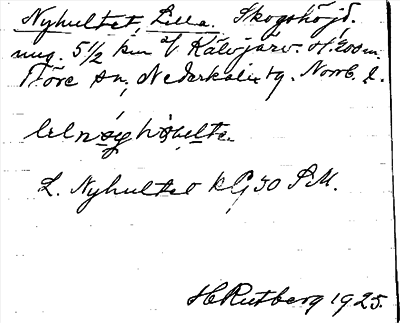 Nyhultet, Lilla. Skogshöjd.
5 1/2 km af Kälvjärv. H. 200 m
Töre sn, Nederkalix tg. Norrb. l.
L. Nyhultet KG 50 P.M.
H Rutberg 1925.